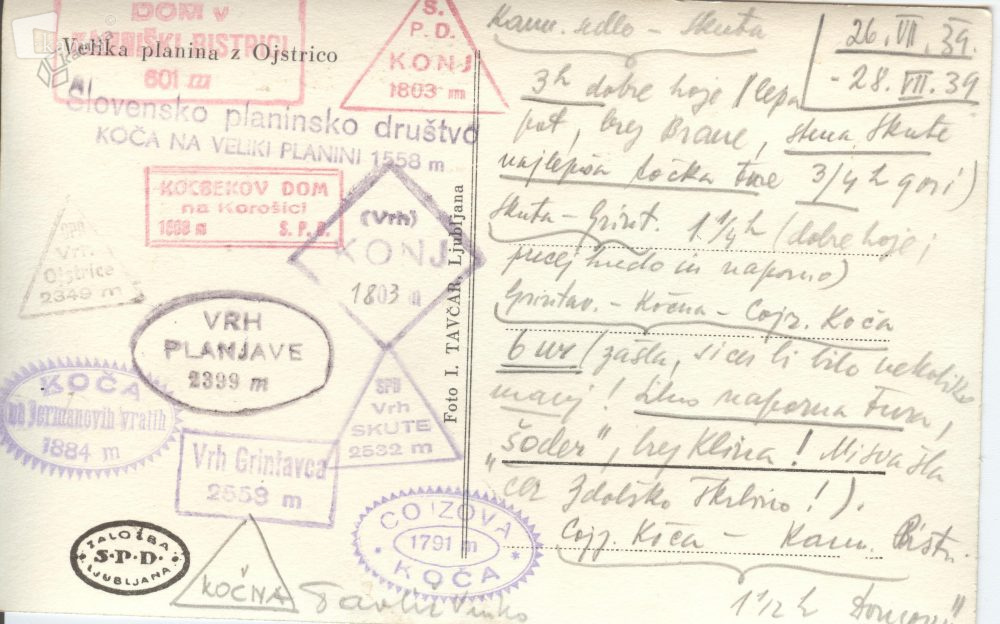 DOM v
KAMNIŠKI BISTRICI
601 m
Velika planina z Ojstrico
S.
P. D.
KONJ
1803 m
Slovensko planinsko društvo
KOČA NA VELIKI PLANINI 1558 m
KOCBEKOV DOM
na Korošici
1808 m S. P. D.
SPD
Vrh
Ojstrice
2349 m
(Vrh)
KONJ
1803 m
VRH
PLANJAVE
2399 m
KOČA
na Jermanovih vratih
1884 m
SPD
Vrh
SKUTE
2532 m
Vrh Grintavca
2558 m
COJZOVA
1791 m
KOČA
ZALOŽBA
S·P·D·
LJUBLJANA
KOČNA
Foto I. TAVČAR, Ljubljana
26. VII. 39.
- 28. VII. 39
Kamn. sedlo – Skuta
3h dobre hoje (lepa
pot, brez Brane, Skute
najlepša točka ture 3/4 h gori)
Skuta – Grint. 1 1/4 h (dobre hoje;
precej hudo in naporno)
Grintav. – Kočna – Cojz. Koča
6 ur (zašla, sicer bi bilo nekoliko
manj! naporna tura,
„šoder", brez klina! Midva šla
čez Zdolško škrbino!).
Cojz. Koča – Kam. Bistr.
1 1/2 h